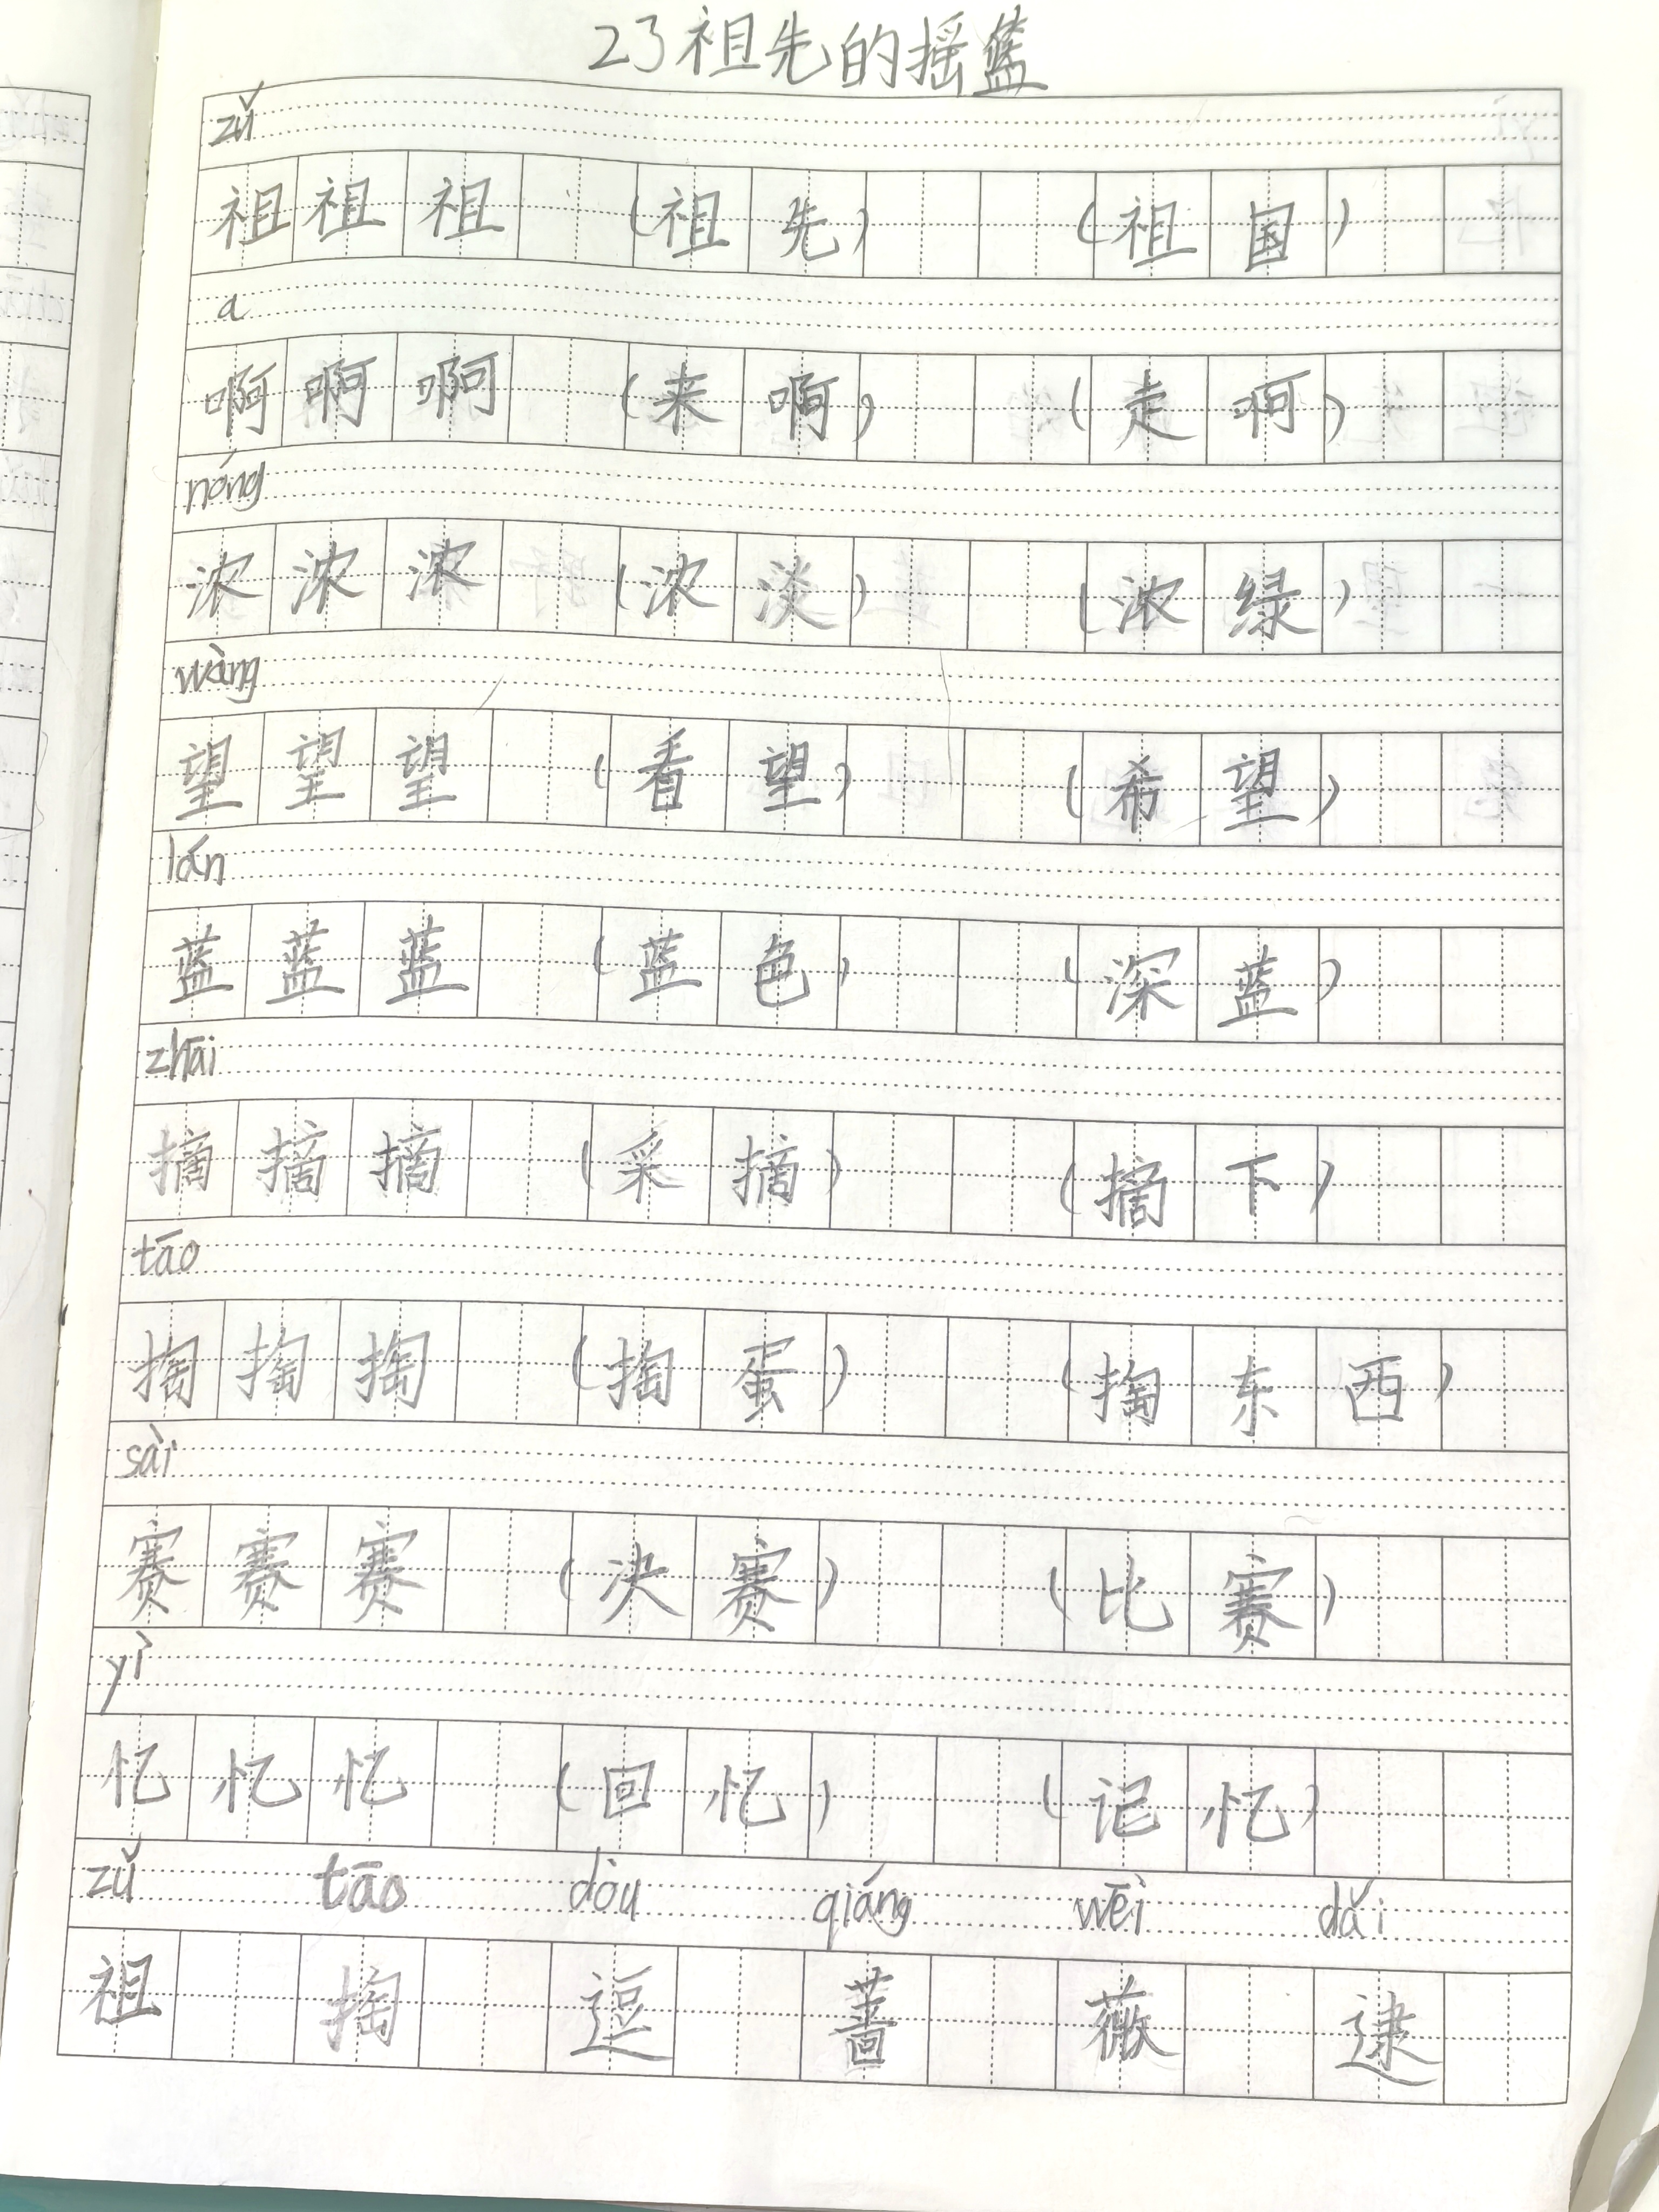 23祖先的摇篮
zǔ
祖祖祖(祖先)(祖国)
a
啊啊啊(来啊)(走啊)
nóng
浓浓浓(浓淡)(浓绿)
wàng
望望望(看望)(希望)
lán
蓝蓝蓝(蓝色)(深蓝)
zhāi
摘摘摘(采摘)(摘下)
tāo
掏掏掏(掏蛋)(掏东西)
sài
赛赛赛(决赛)(比赛)
yì
忆忆忆(回忆)(记忆)
zǔ tāo dòu qiáng wēi dǎi
祖 掏 逗 蔷 薇 逮